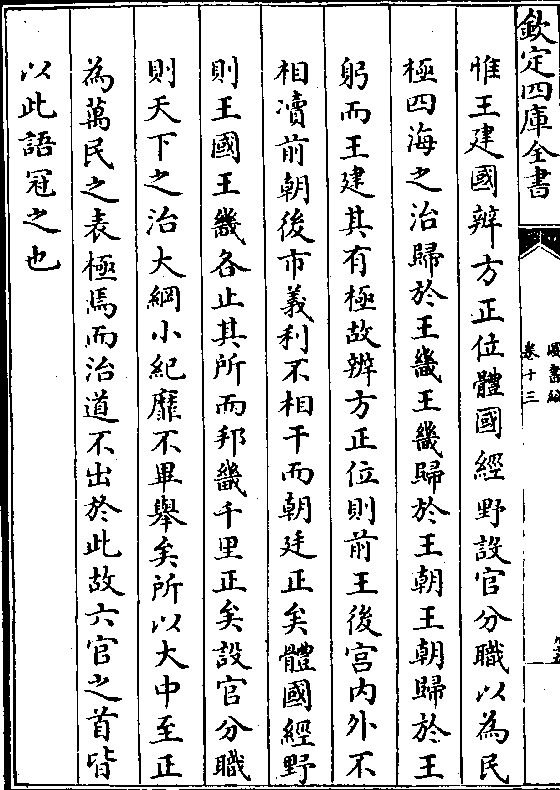 欽定四庫全書
卷十三
惟王建國辨方正位體國經野設官分職以為民
極四海之治歸於王畿王畿歸於王朝王朝歸於王
躬而王建其有極故辨方正位則前王後宫内外不
相凟前朝後市義利不相干而朝廷正矣體國經野
則王國王畿各止其所而邦畿千里正矣設官分職
則天下之治大綱小紀靡不畢舉矣所以大中至正
為萬民之表極焉而治道不出於此故六官之首皆
以此語冠之也